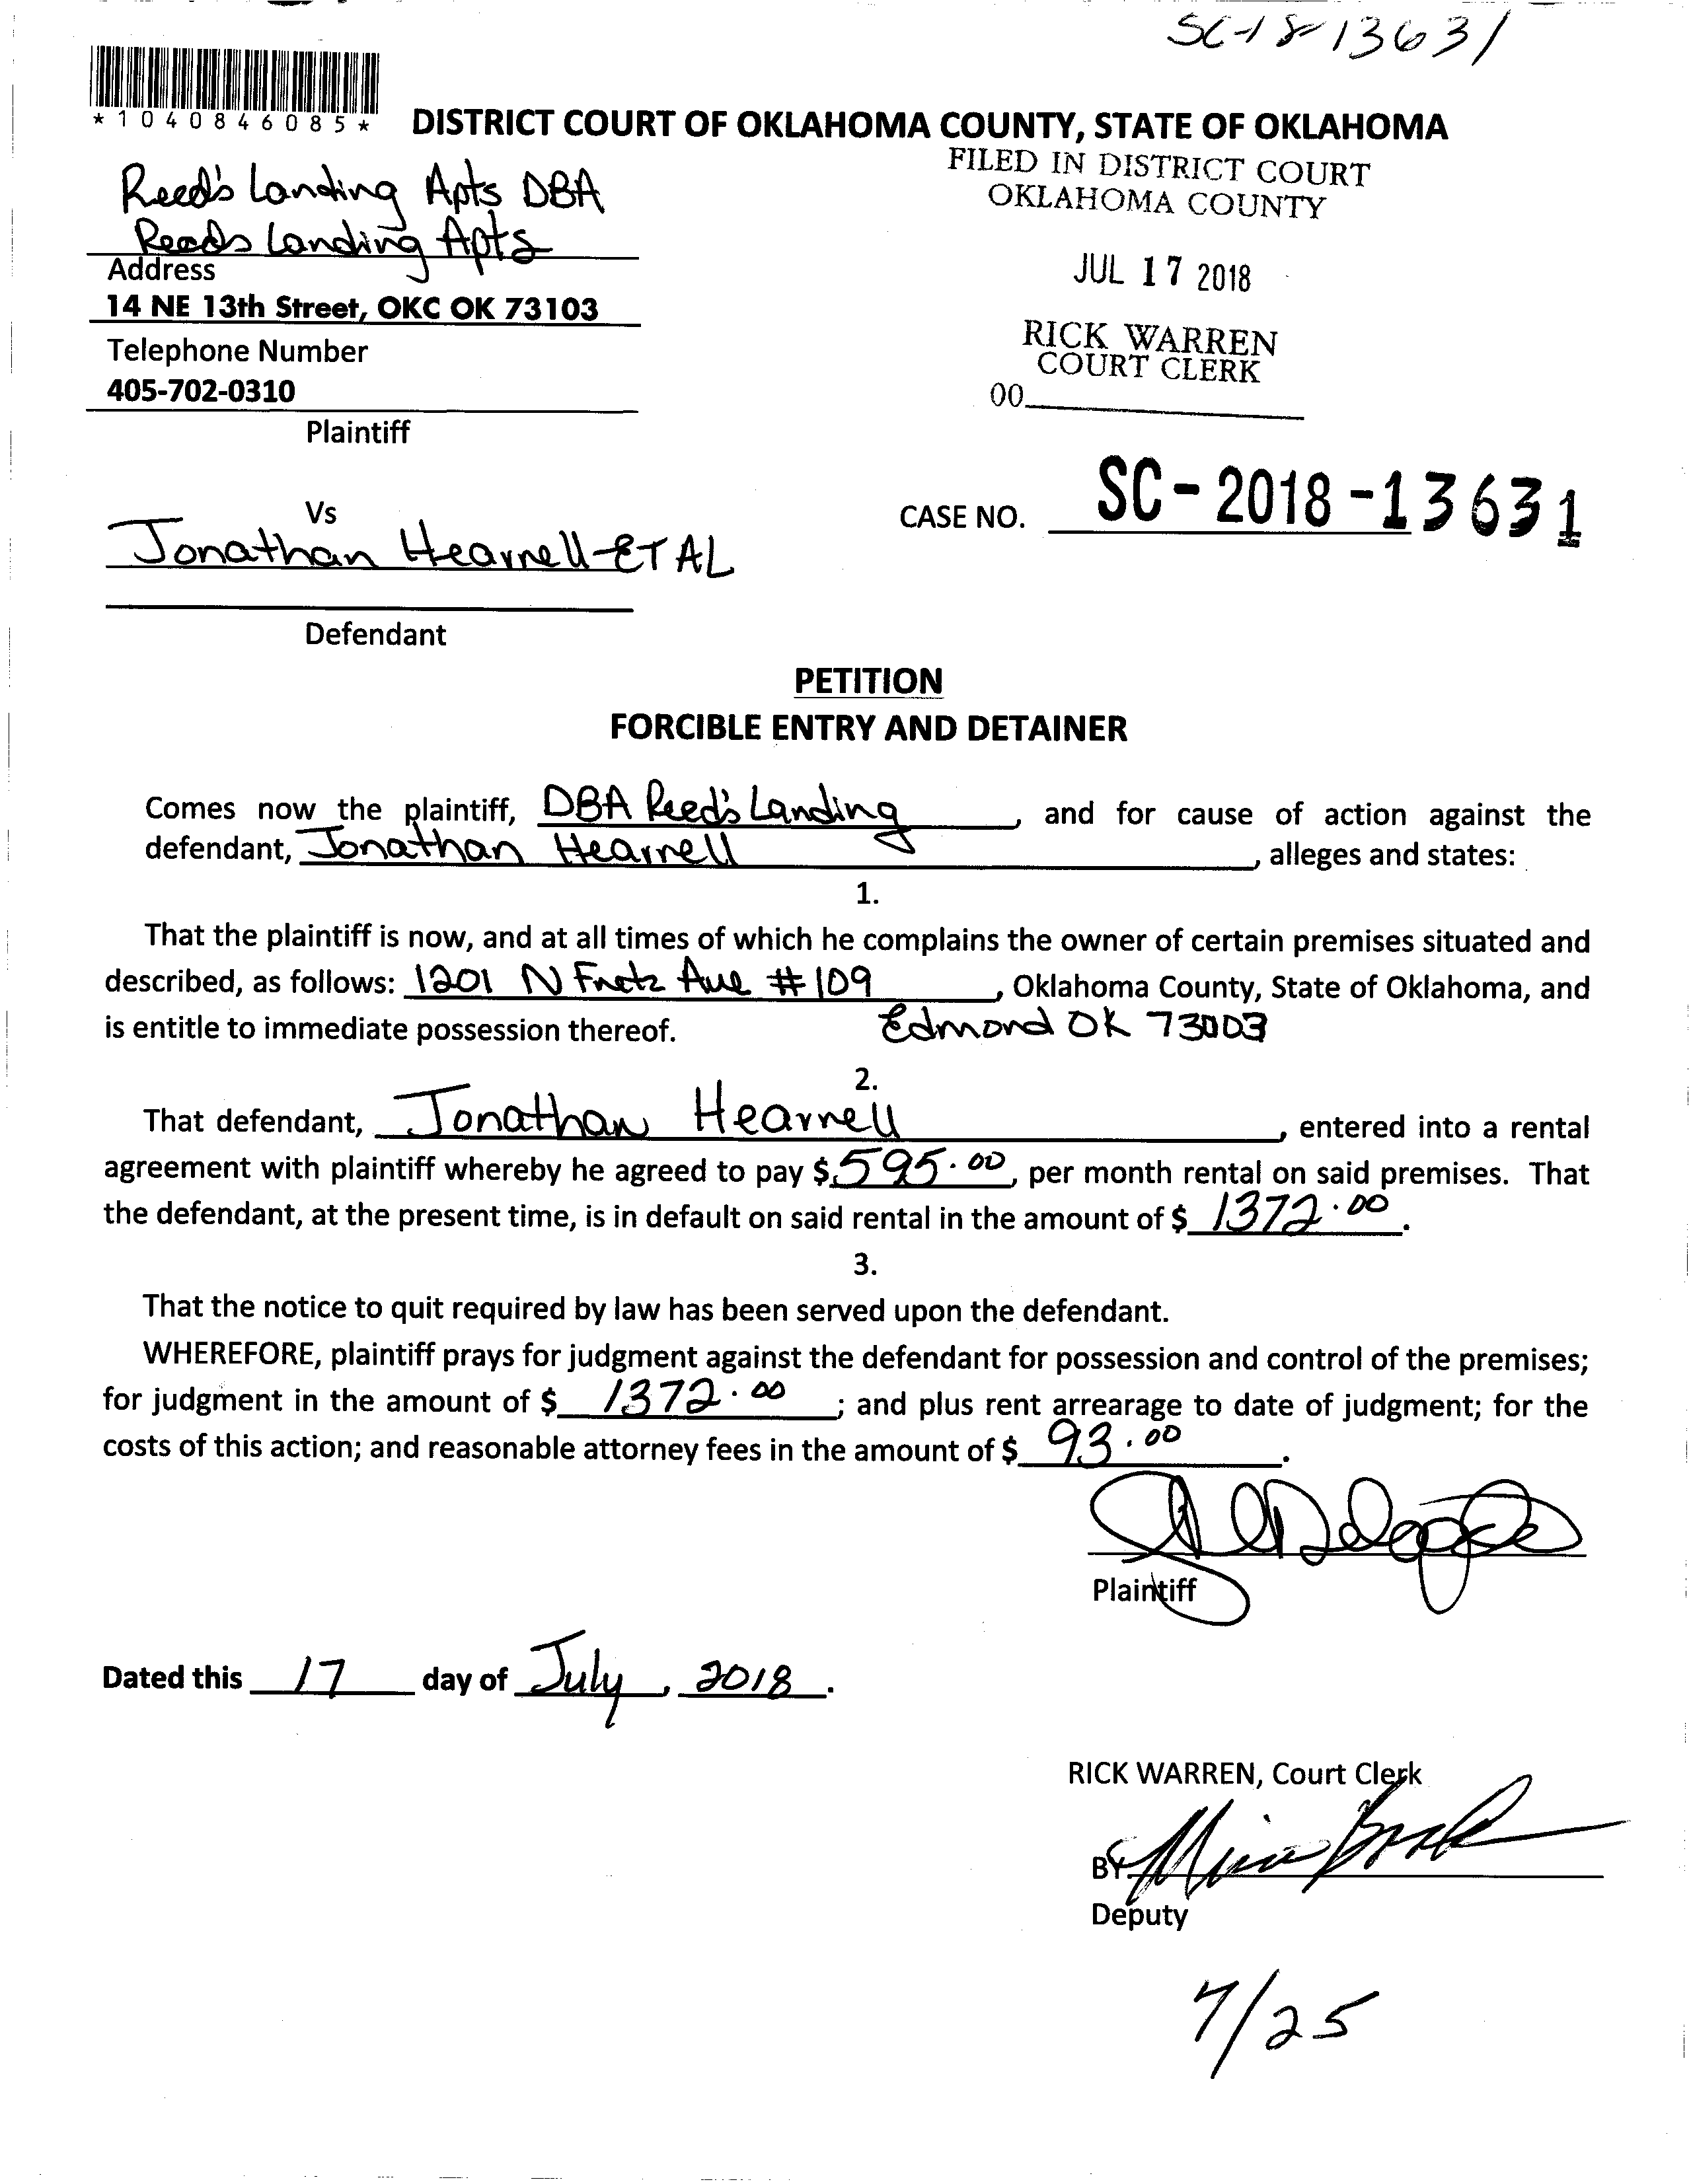 SC-18-13631
*1040846085*
DISTRICT COURT OF OKLAHOMA COUNTY, STATE OF OKLAHOMA
FILED IN DISTRICT COURT
OKLAHOMA COUNTY
JUL 17 2018
RICK WARREN
COURT CLERK
00
Reed's Landing Apts DBA
Reeds Landing Apts
Address
14 NE 13th Street, OKC OK 73103
Telephone Number
405-702-0310
Plaintiff
Vs
CASE NO. SC-2018-13631
Jonathan Hearnell-ET AL
Defendant
PETITION
FORCIBLE ENTRY AND DETAINER
Comes now the plaintiff, DBA Reed's Landing, and for cause of action against the
defendant, Jonathan Hearnell, alleges and states:
1.
That the plaintiff is now, and at all times of which he complains the owner of certain premises situated and
described, as follows: 1201 N Fretz Ave #109, Oklahoma County, State of Oklahoma, and
is entitle to immediate possession thereof. Edmond OK 73003
2.
That defendant, Jonathan Hearnell, entered into a rental
agreement with plaintiff whereby he agreed to pay $ 595.00, per month rental on said premises. That
the defendant, at the present time, is in default on said rental in the amount of $ 1372.00.
3.
That the notice to quit required by law has been served upon the defendant.
WHEREFORE, plaintiff prays for judgment against the defendant for possession and control of the premises;
for judgment in the amount of $ 1372.00; and plus rent arrearage to date of judgment; for the
costs of this action; and reasonable attorney fees in the amount of $ 93.00.
Plaintiff
Dated this 17 day of July, 2018.
RICK WARREN, Court Clerk
BY
Deputy
7/25